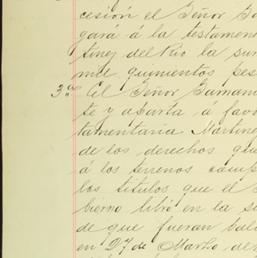 cesión el Señor
gará á la testamen
tinez del Rio la su
mil quinientos pes
3.º El Señor
te y aparta á favo
tamentaria Martine
de los derechos que
á los terrenos comp
los títulos que el S
bierno libró en la
de que fueran bal
en 27 de Marzo de